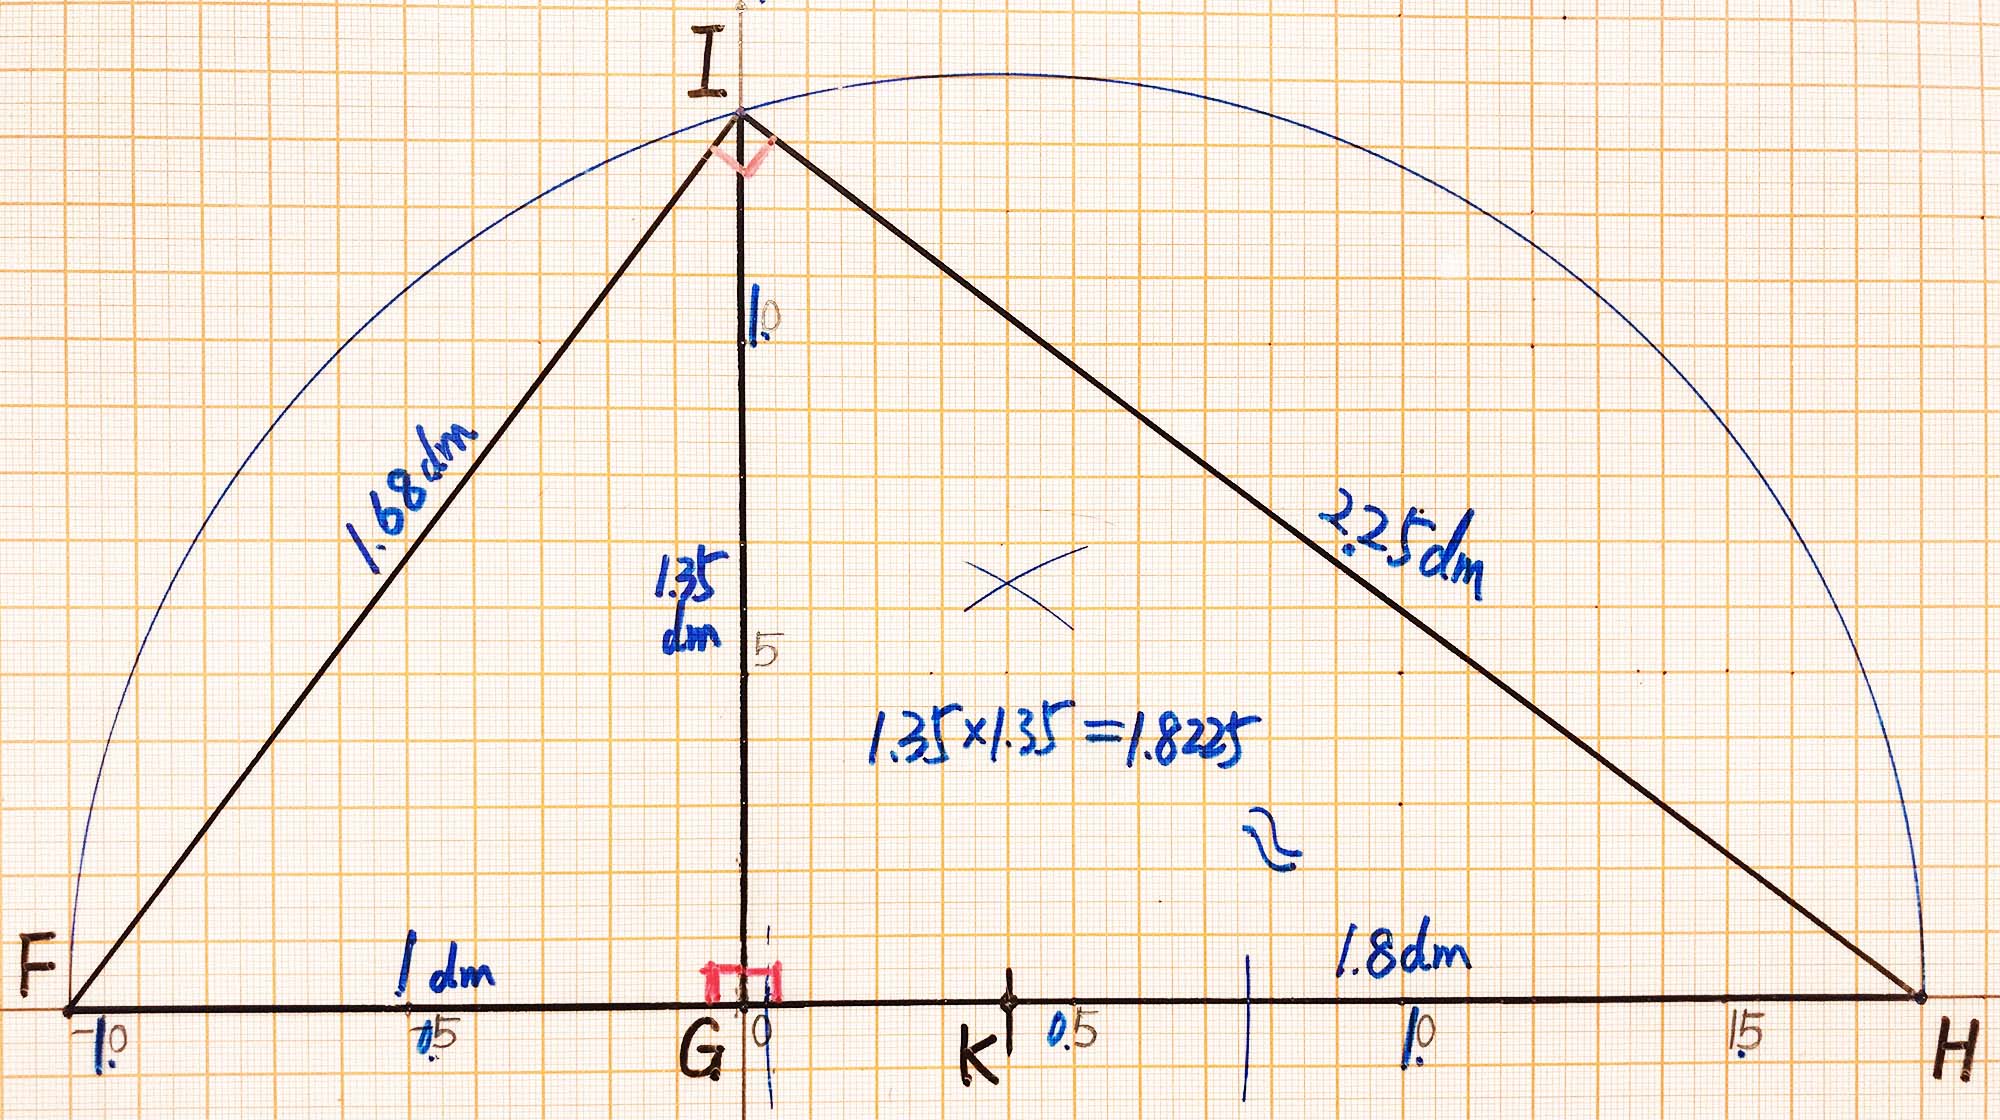 I
1.0
1.68dm
2.25dm
1.35
dm
5
1.35×1.35=1.8225
≈
1.8dm
F
1 dm
-1.0
-0.5
G
0
K
0.5
1.0
1.5
H